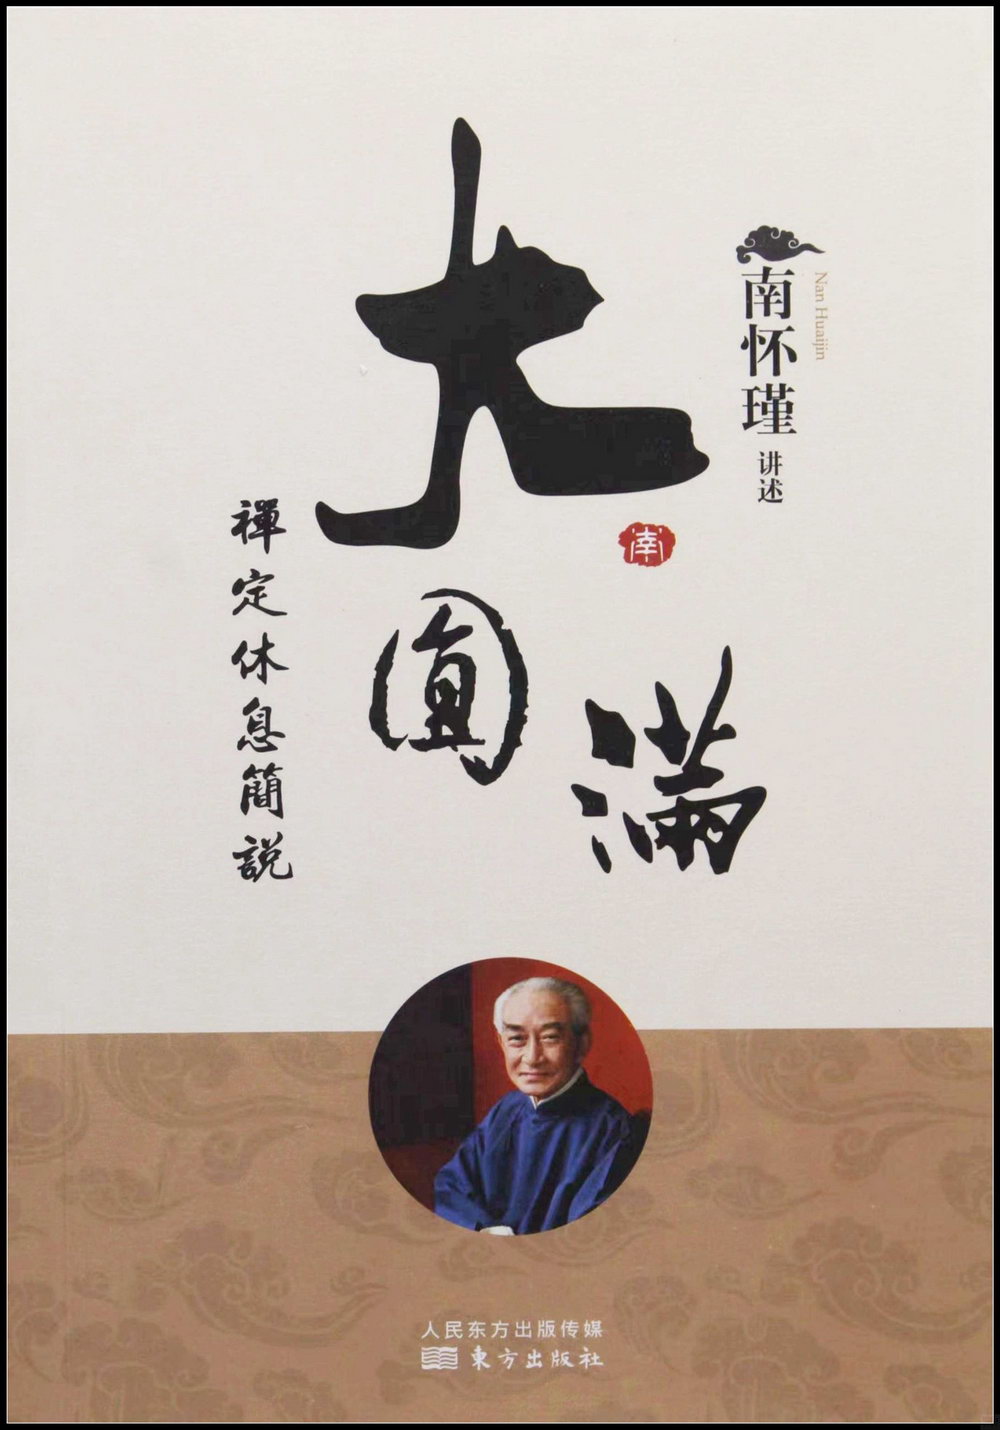 南怀瑾
讲述
Nan Huaijin
大圓滿
南
禪定休息簡説
人民东方出版传媒
東方出版社